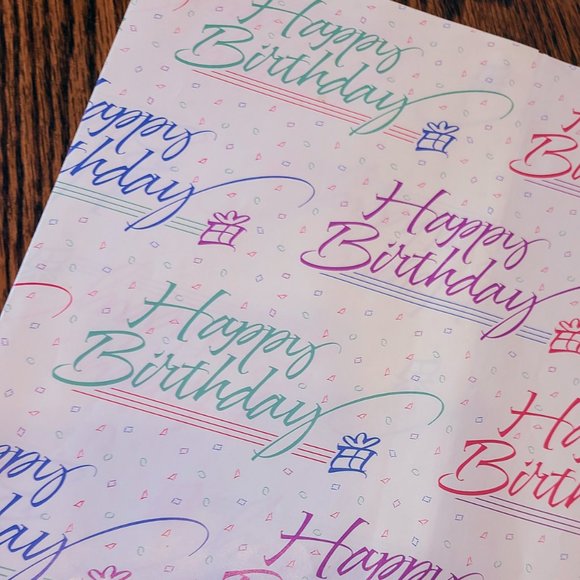 Happy
Birthday
Bi
appy
thday
Happy
Birthday
Happy
Birthday
Ha
Birth
ppy
ay
Happy